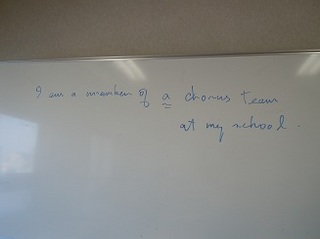 I am a member of a chorus team
at my school.